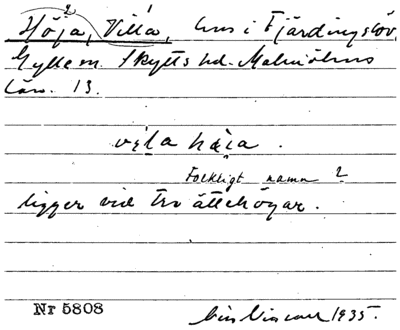 Höja, Villa, hus i Fjärdingslöv,
Gylle sn. Skytts hd. Malmöhus
län. 13.
véla hȧi̯a.
Folkligt namn?
ligger vid tre ättehögar.
Nr 5808
1935.